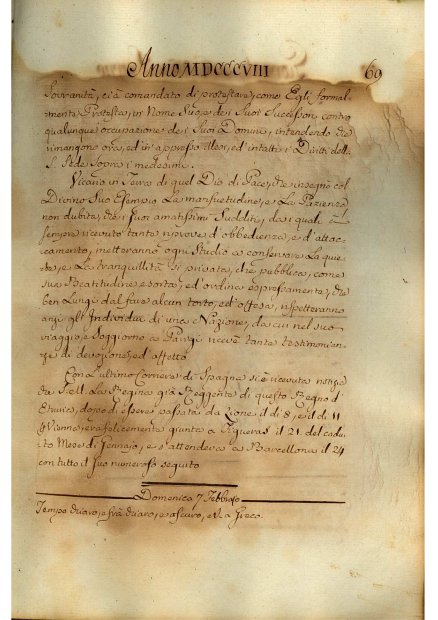 Anno MDCCCVIII
69
Sovranità, ci à comandato di protestare, come Egli formal-
mente Protesta, in Nome Suo, e de i Suoi Successori contro
qualunque occupazione de i Suoi Dominj, intendendo che
rimangono ora, ed in appresso illesi, ed intatti i Diritti della
S. Sede Sopra i medesimi.
Vicario in Terra di quel Dio di Pace, che insegnò col
Divino Suo Esempio La mansuetudine, e La Pazienza
non dubita, che i Suoi amatissimi Sudditi, da i quali à
sempre ricevuto tante riprove d'obbedienza, e d'attac-
camento, metteranno ogni Studio a conservare La quie-
te, e La tranquillità sì privata, che pubblica, come
Sua Beatitudine esorta, ed ordina espressamente, che
ben Lungi dal fare alcun torto, ed offesa, rispetteranno
anzi gl'Individui di una Nazione, da cui nel suo
viaggio e Soggiorno a Parigi ricevè tante testimonian-
ze di devozione, ed affetto
Con L'ultimo Corriere di Spagna si è ricevuta notizia
La Regina già Reggente di questo Regno d'
Etruria, dopo di essere passata da Lione il dì 8, e il dì 11
Vienna, era felicemente giunta a Figueras il 21. del cadu-
to Mese di Gennajo, e s'attendeva a Barcellona il 24
con tutto il suo numeroso seguito
Domenica 7 Febbrajo
Tempo chiaro, e frà chiaro, e oscuro, e V. a Greco.